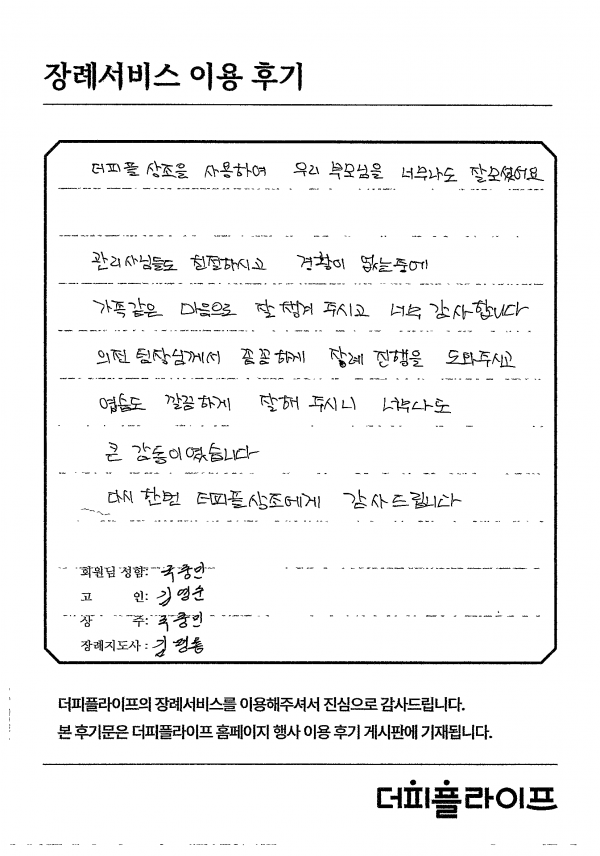 장례서비스 이용 후기
더피플 상조을 사용하여 우리 부모님을 너무나도 잘모셨어요
관리사님들도 친절하시고 경황이 없는중에
가족같은 마음으로 잘 챙겨 주시고 너무 감사합니다
의전 팀장님께서 꼼꼼하게 장례 진행을 도와주시고
염습도 깔끔하게 잘해 주시니 너무나도
큰 감동이였습니다
다시 한번 더피플상조에게 감사드립니다
회원님 성함: 국중인
고 인: 김영순
상 주: 국중인
장례지도사 : 김
더피플라이프의 장례서비스를 이용해주셔서 진심으로 감사드립니다.
본 후기문은 더피플라이프 홈페이지 행사 이용 후기 게시판에 기재됩니다.
더피플라이프